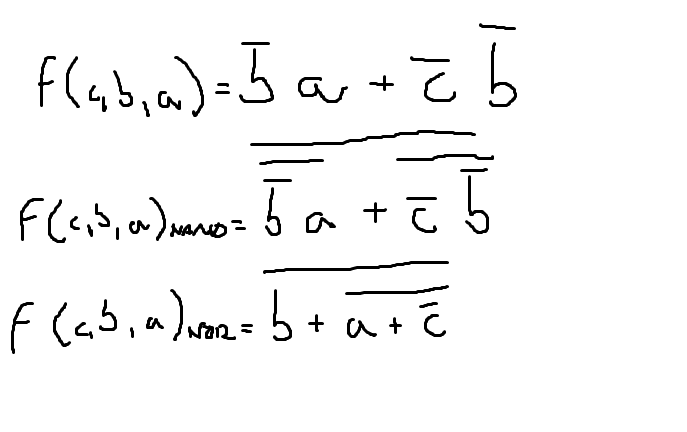 F(c,b,a)=b̅ a + c̅ b̅
F(c,b,a)NAND= \overline{\overline{b̅ a} + \overline{c̅ b̅}}
F(c,b,a)NOR= \overline{b + \overline{a + c̅}}